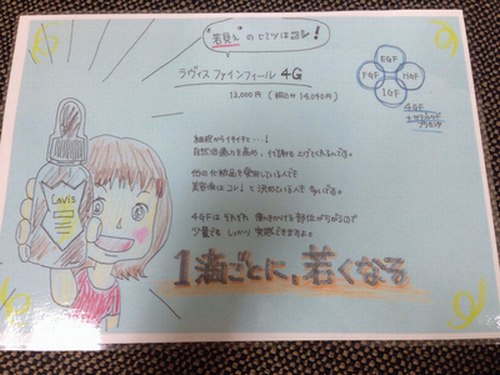 "若見え"のヒミツはコレ!
ラヴィス ファインフィール 4G
13,000円 (税込み 14,040円)
EGF
FGF
HGF
IGF
4GF
プラセンタ
Lavis
細胞からイキイキと…!
自然治癒力を高め、代謝も上げてくれるいです。
他の化粧品を愛用している人でも
美容液はコレ!と決めている人も多いです。
4GFはそれぞれ働きかける部位がちがうので
少量でもしっかり実感できますよ。
1滴ごとに、若くなる